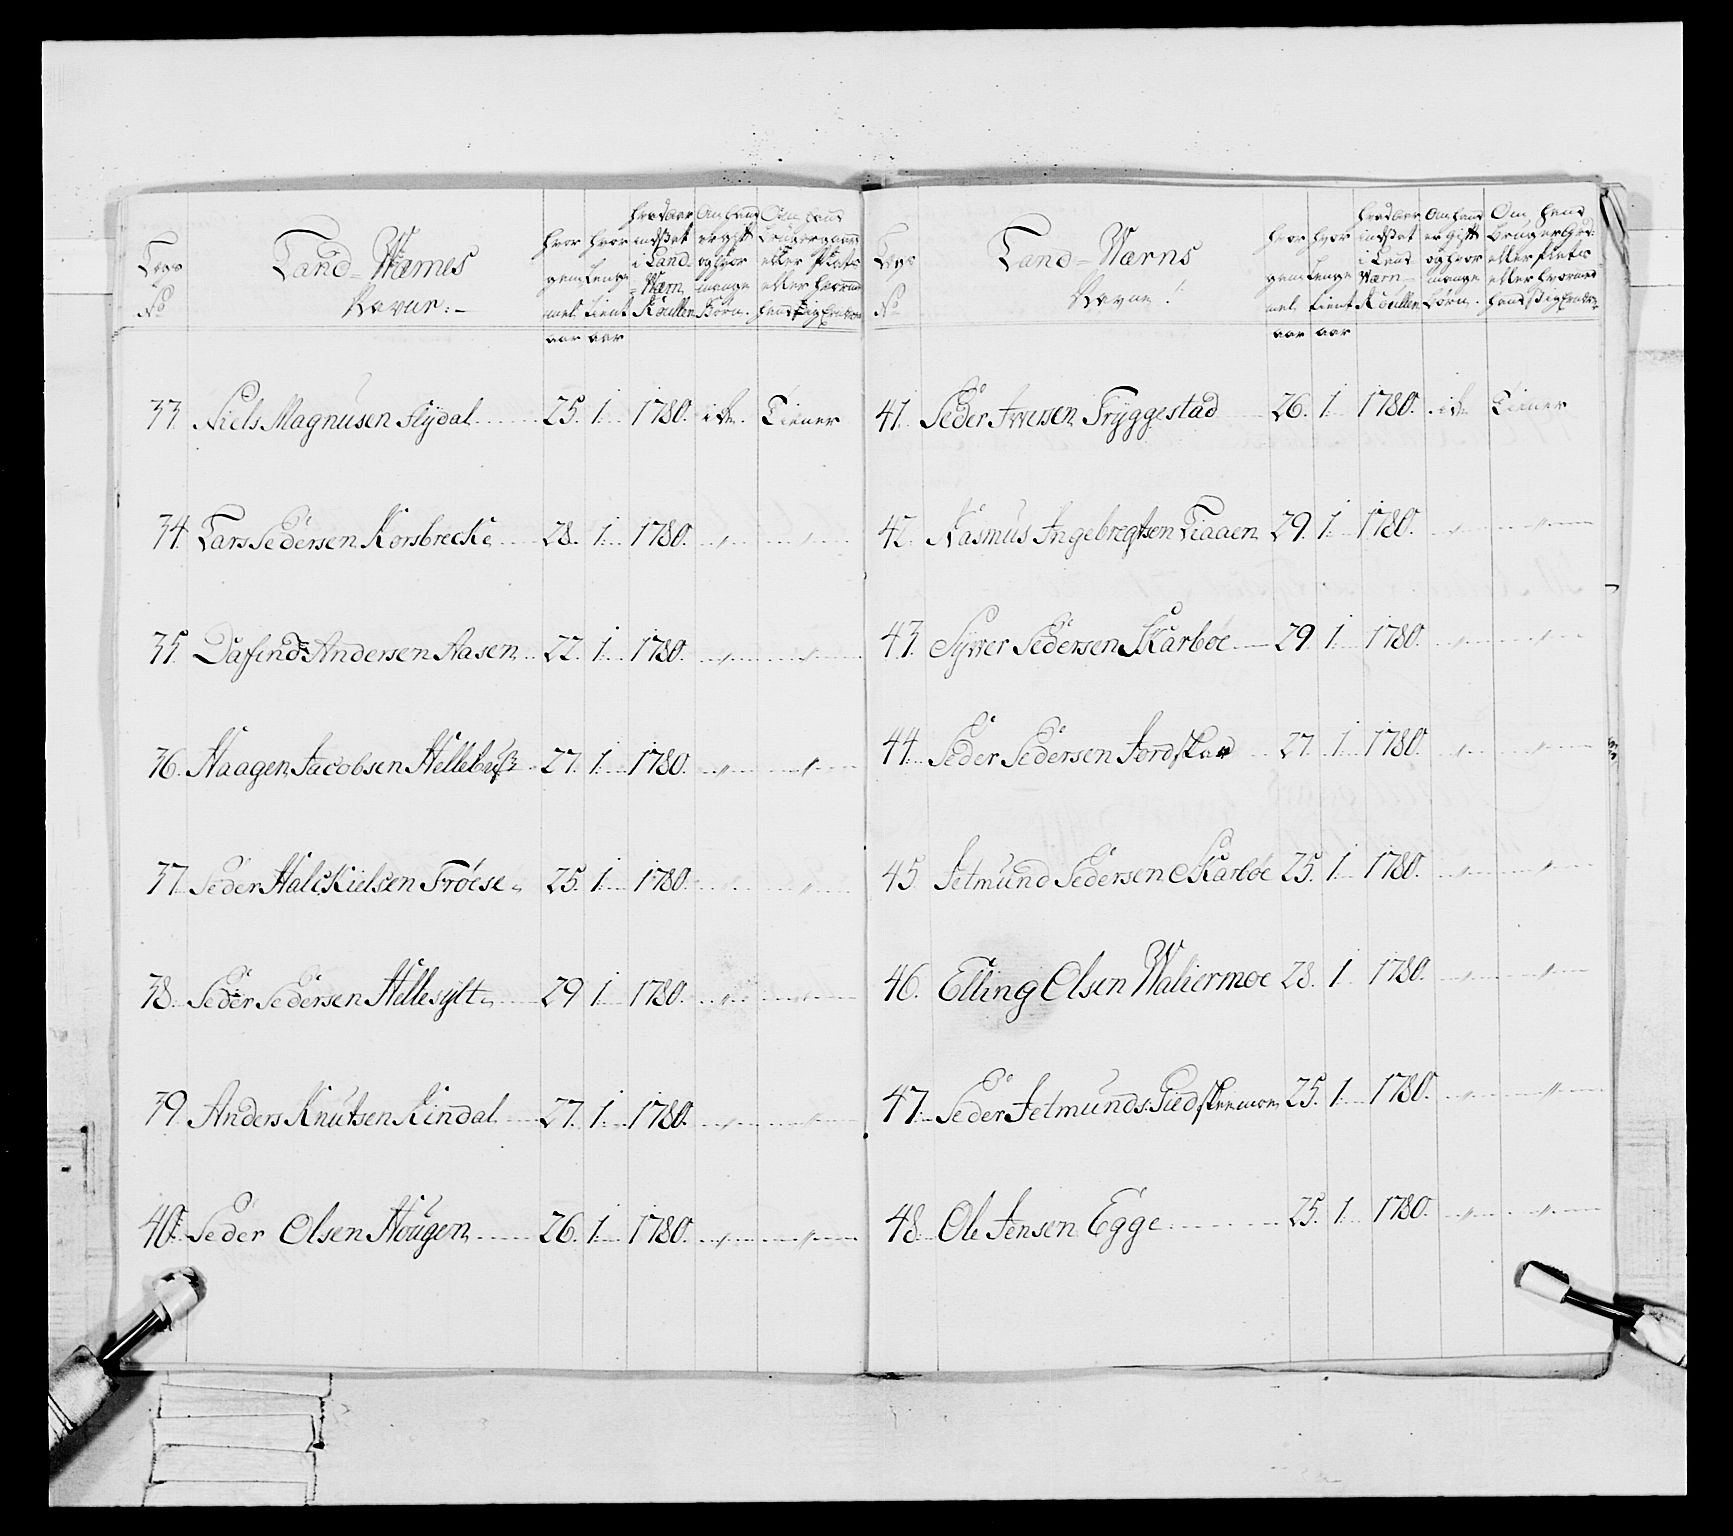 Legs No
Land-Wærnes Navne:-
hvor gammel aar
hvor Lenge tient aar
hvad aar indsat i Land-Wærn Roullen
Om hand er gift og hvor mange Børn.
Om hand bruger gaard eller Plads eller hvormed hand sig ernærer
33. Niels Magnusen Flÿdal 25. 1. 1780. ik. Tiener
34. Lars Pedersen Korsbrecke 28. 1. 1780. " "
35. Dafind Andersen Aasen 22. 1. 1780. " "
36. Haagen Jacobsen Hellebust 27. 1. 1780. " "
37. Peder Halckielsen Frøese 25. 1. 1780. " "
38. Peder Pedersen Hellesylt 29 1. 1780. " "
39. Anders Knutsen Kindal 27. 1. 1780. " "
40. Peder Olsen Hougen 26. 1. 1780. " "
Legs No
Land-Wærns Navne:
hvor gammel aar
hvor Lenge tient aar
hvad aar indsat i Land Wærn Roullen
Om hand er Gift og hvor mange børn.
Om hand bruger Grd: eller plads eller hvormed hand sig Ernærer
41. Peder Iversen Trÿggestad 26. 1. 1780. ik. Tiener
42. Rasmus Ingebregtsen Tiaaen 29. 1. 1780. " "
43. Sÿver Pedersen Skarbøe 29. 1. 1780. " "
44. Peder Pedersen Fordskard 27. 1. 1780. " "
45. Jetmund Pedersen Skarbøe 25. 1. 1780. " "
46. Elling Olsen Waliermoe 28. 1. 1780. " "
47. Peder Jetmunds: 25. 1. 1780. " "
48. Ole Jensen Egge 25. 1. 1780. " "